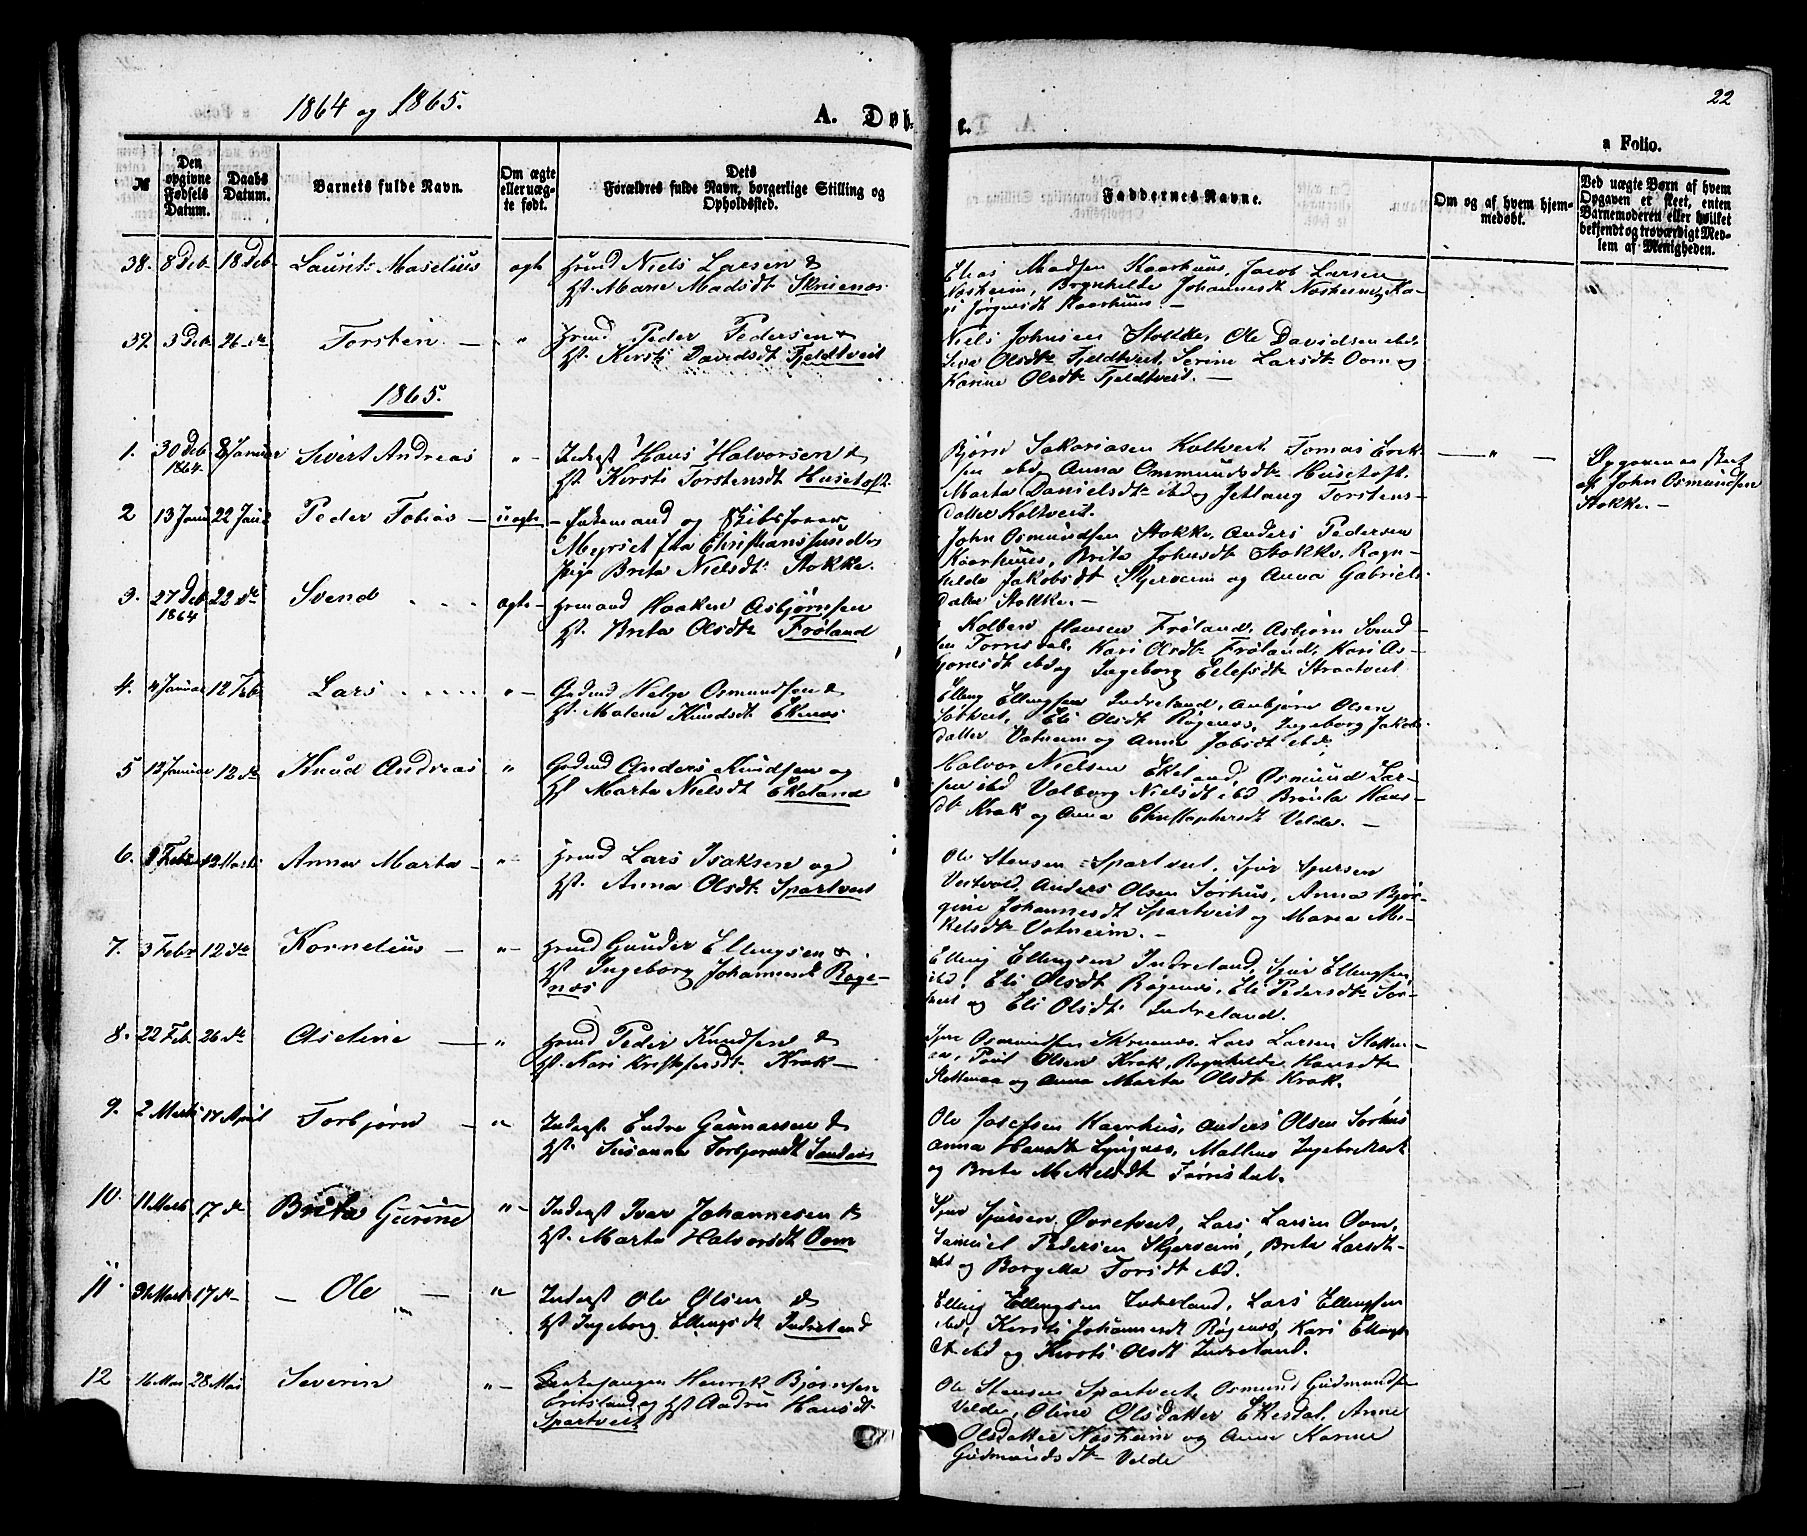 1864 og 1865.
A. Døb-
t.
22
a Folio.
№
Den opgivne Fødsels Datum.
Daabs Datum.
Barnets fulde Navn.
Om ægte eller uægte født.
Dets Forældres fulde Navn, borgerlige Stilling og Opholdssted.
Faddernes Navne.
Om og af hvem hjemmedøbt.
Ved uægte Børn af hvem Opgaven er skeet, enten Barnemoderen eller hvilket bekjendt og troværdigt Medlem af Menigheden.
38. 8 Deb 18 Deb Laurits Maselius ægte
Niels Larsen &
Mare Madsdt Skruenæs
Elias Madsen Kaarhuus, Jacob Larsen
Næsheim, Brynhilde Johannesdt Næsheim, Ka-
Jørgensdt Kaarhuus —
39. 3 Deb 26 Torsten — "
Peder Pedersen &
Kirsti Davidsdt Fjeldtveit
Niels Johnsen Stokke, Ole Davidsen ibd.
Olsdt Fjeldtveit, Serine Larsdt Oom og
Karine Olsdt Fjeldtveit. —
1865.
1. 30 Deb 1864 8 Januar Sivert Andreas "
Inderst Hans Halvorsen &
Kirsti Torstensdt Husetoft
Bjørn Sakariasen Koltveit, Tomas Erik-
sen ibd, Anna Ommundsdt Husetoft
Marta Danielsdt ibd og Torstens-
datter Koltveit.
— " —
2 13 Janu 22 Janu Peder Tobias — uægte —
og Skibsfører
Meyrset fra Christianssund &
Pige Brita Nielsdt Stokke.
John Osmundsen Stokke, Anders Pedersen
Kaarhuus, Brita Johnsdt Stokke, Ragn-
hilde Jakobsdt Skjerveim og Anna Gabriels-
datter Stokke. —
Opgaven er skeet
af John Osmundsen
Stokke. —
3. 27 Deb 1864 22 Svend ægte —
Haaken Asbjørnsen
Brita Olsdt Frøland
Kolben Hansen Frøland, Asbjørn Svend-
sen Torrisdal, Kari Olsdt Frøland, Kari As-
bjørnsdt ibd og Ingeborg Eilefsdt Straatveit
4. Januar 12 Feb Lars " —
Helge Osmundsen &
Malene Knudsdt Ekenes
Elling Ellingsen Indreland, Anbjørn Olsen
Eli Olsdt Røgenæs, Ingeborg Jakobs-
datter Vatneim og Anna ibd.
5 13 Januar 12 Knud Andreas "
Anders Knudsen og
Marta Nielsdt Ekeland
Halvor Nielsen Ekeland, Osmund Lar-
sen ibd Valborg Nielsdt ibd Hans-
dt Krak og Anna Christophersdt Velde. —
6. Febr 12 Marts Anna Marta — "
Lars Isaksen og
Anna Olsdt Spartveit
Ole Stensen Spartveit, Sjur Sjursen
Vestvold, Anders Olsen Sørhus, Anna Bjør-
gine Johannesdt Spartveit og Maria Mi-
kelsdt Vatneim. —
7. 3 Febr 12 Kornelius — " —
Gunder Ellingsen &
Ingeborg Johannesdt Røge-
næs
Elling Ellingsen Indreland, Sjur Ellingsen
ibd, Eli Olsdt Røgenæs, Eli Pedersdt
og Eli Olsdt Indreland.
8. 22 Feb 26 Aseline — "
Peder Knudsen &
Kari Kristofersdt Krak —
Sjur Osmundsen Skruenæs, Lars Larsen
Poul Olsen Krak, Ragnhilde Hansdt
og Anna Marta Olsdt Krak.
9. 2 Marts 17 April Torbjørn — "
Inderst Endre Gunnarsen &
Susanna Torbjørnsdt Sandvis
Ole Josefsen Kaarhus, Anders Olsen Sørhus
Anna Hansdt Lyngnes, Malene Ingebretsdt
og Brita Mikelsdt Torrisdal.
10. 11 Marts 17 Brita Gurine " —
Inderst Ivar Johannesen &
Marta Halvorsdt Oom
Sjur Sjursen Øvretveit, Lars Larsen Oom,
Samuel Pedersen Skjerveim, Brita Larsdt
ibd og Borgilla Torsdt ibd.
11. Marts 17 — Ole — "
Inderst Ole Olsen &
Ingeborg Ellingsdt Indreland
Elling Ellingsen Indreland, Lars Ellingsen
ibd, Kirsti Johannesdt Røgenæs, Kari Ellings-
dt ibd og Kirsti Olsdt Indreland.
12 16 Mai 28 Mai Severin " —
Henrik Bjørnsen
Eritsland og Andru Hansdt
Spartveit
Ole Stensen Spartveit, Osmund Gudmundsen
Velde, Oline Olsdatter Ekesdal, Anne
Olsdatter Næsheim og Anne Karine
Gudmundsdt Velde